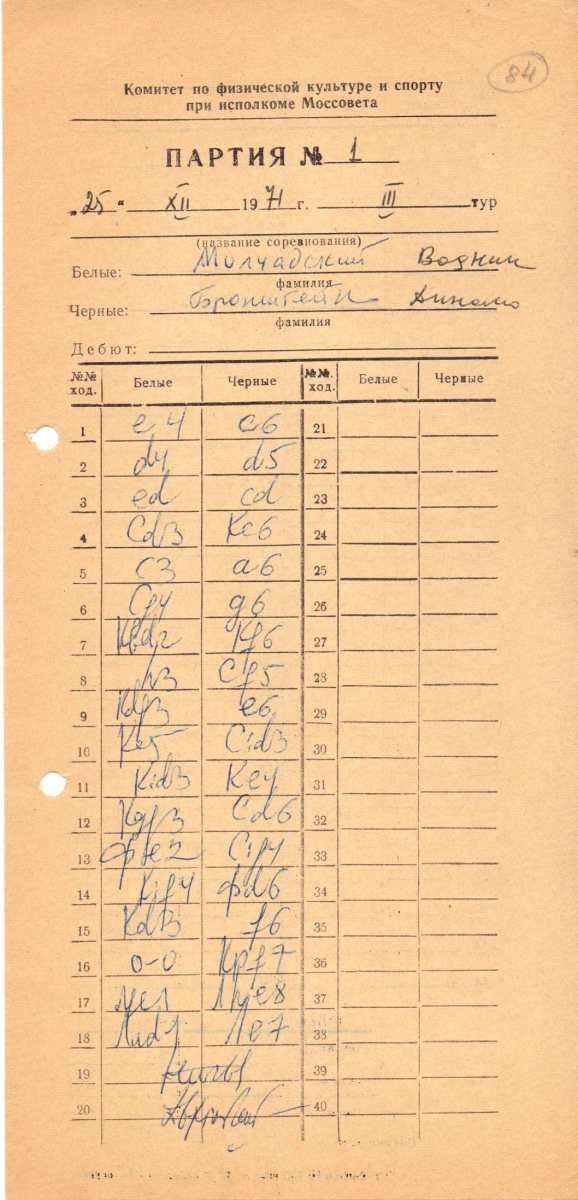 84
Комитет по физической культуре и спорту
при исполкоме Моссовета
ПАРТИЯ № 1
„25" XII 1971 г. III тур
(название соревнования)
Белые: Молчадский Водник
фамилия
Черные: Бронштейн Динамо
фамилия
Дебют:
№№ ход. Белые Черные №№. ход. Белые Черные
1 e4 c6 21
2 d4 d5 22
3 ed cd 23
4 Cd3 Kc6 24
5 c3 a6 25
6 Cf4 g6 26
7 Kd2 Kf6 27
8 h3 Cf5 28
9 Kgf3 e6 29
10 Ke5 C:d3 30
11 K:d3 Ke4 31
12 Kf3 Cd6 32
13 Фe2 C:f4 33
14 K:f4 Фd6 34
15 Kd3 f6 35
16 0-0 Kpf7 36
17 Лe1 Лhe8 37
18 Лad1 Лe7 38
19 39
20 40